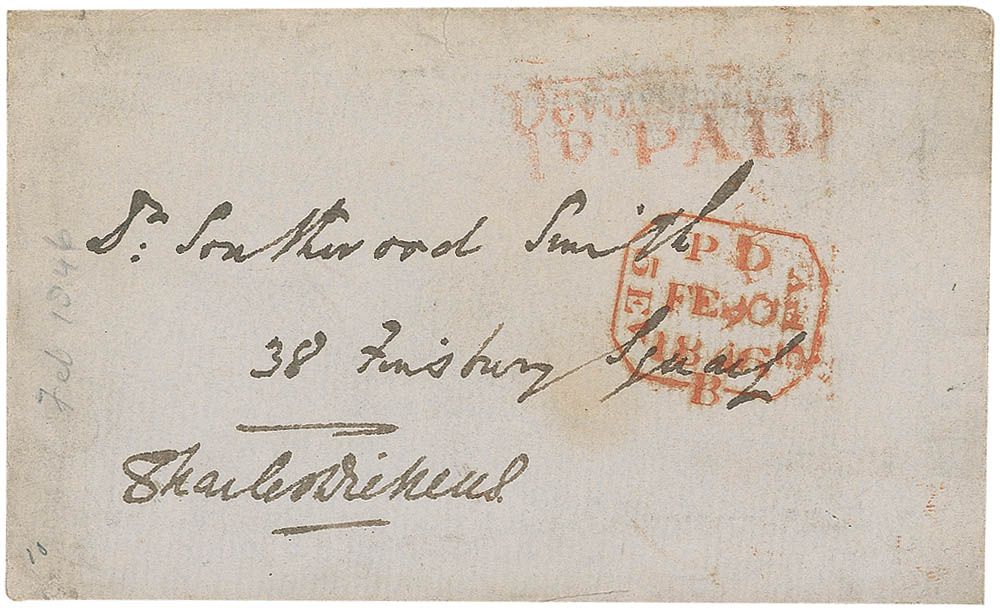 1D. PAID
Dr. Southwood Smith
P D
FE
1846
B
38 Finsbury Square
Charles Dickens
Feb 1846
10